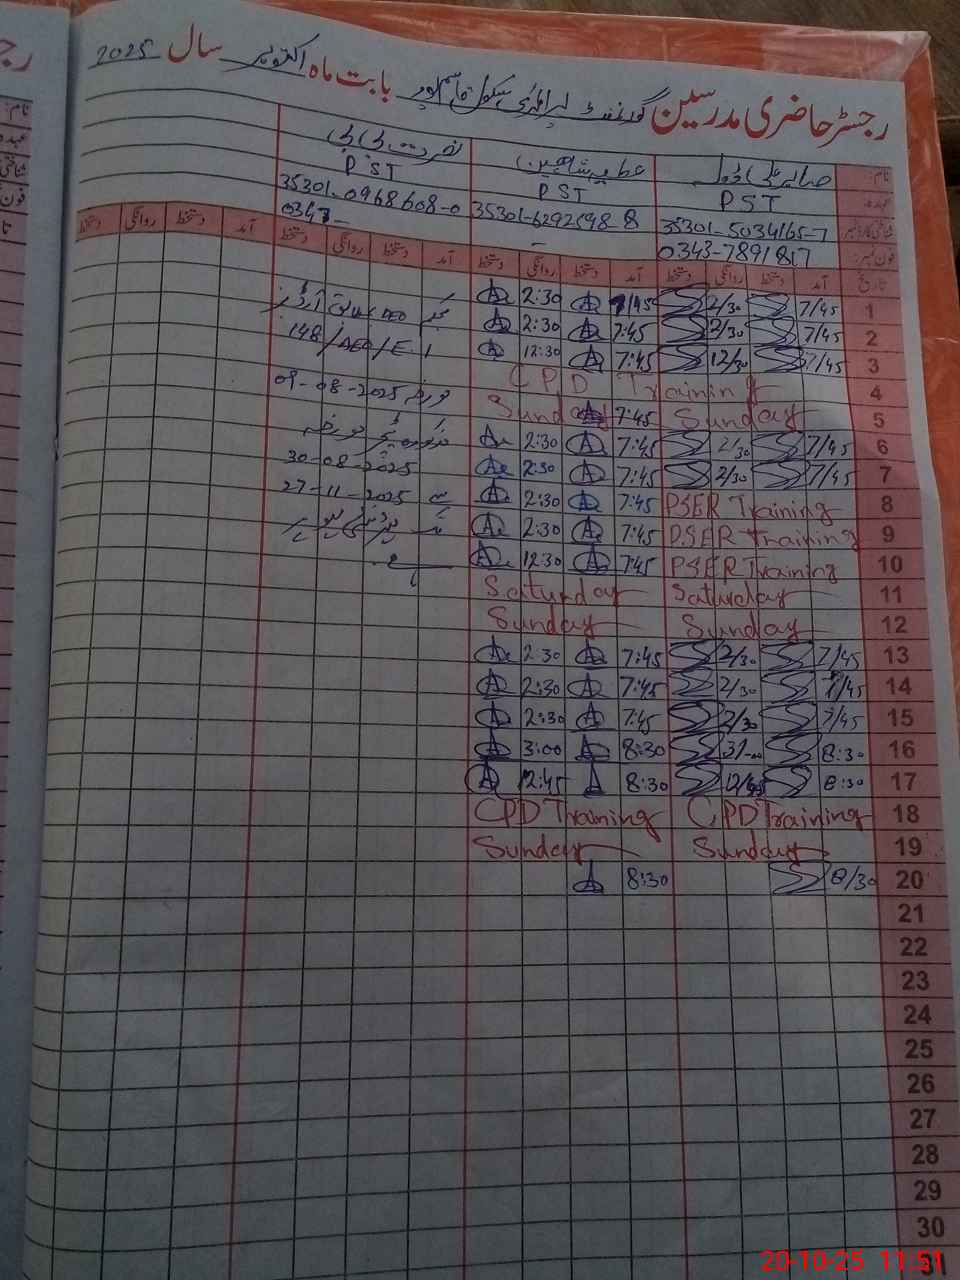 رجسٹر حاضری مدرسین گورنمنٹ پرائمری سکول قاسم پور بابت ماہ اکتوبر سال 2025
نام: عطیہ شاہین نصرت بی بی
عہدہ PST PST PST
شناختی کارڈ نمبر 35301-5034165-7 35301-6292698-8 35301-0968608-0
فون نمبر: 0343-7891817 - 0347-
تاریخ آمد دستخط روانگی دستخط آمد دستخط روانگی دستخط آمد دستخط روانگی دستخط آمد دستخط روانگی دستخط
1 7/45 2/30 7/45 2:30
2 7/45 2/30 7:45 2:30
3 7/45 12/30 7:45 12:30 148/AEO/E.I
4 CPD Training 09-08-2025
5 Sunday 7:45 Sunday
6 7/45 2/30 7:45 2:30
7 7/45 2/30 7:45 2:30 30-08-2025
8 PSER Training 7:45 2:30 27-11-2025
9 PSER Training 7:45 2:30
10 PSER Training 7:45 12:30
11 Saturday Saturday
12 Sunday Sunday
13 7/45 2/30 7:45 2:30
14 7/45 2/30 7:45 2:30
15 7/45 2/30 7:45 2:30
16 8:30 3/00 8:30 3:00
17 8:30 12/45 8:30 12:45
18 CPD Training CPD Training
19 Sunday Sunday
20 8/30 8:30
21
22
23
24
25
26
27
28
29
30
31
20-10-25 11:51